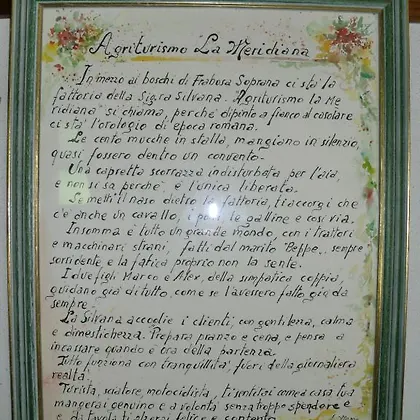 Agriturismo La Meridiana
In mezzo ai boschi di Frabosa Soprana ci sta' la
fattoria della Sig.ra Silvana. Agriturismo la Me
ridiana" si chiama, perche' dipinto a fianco al casolare
ci sta' l'orologio di epoca romana.
Le cento mucche in stalla, mangiano in silenzio,
quasi fossero dentro un convento.
Una capretta scorrazza indisturbata per l'aia,
e non si sa perche' e' l'unica liberata.
Se metti il naso dietro la fattoria, ti accorgi che
c'e' anche un cavallo, i le galline e così via.
Insomma e' tutto un grande mondo, con i trattori
e macchinari strani, fatti dal marito "Beppe", sempre
sorridente e la fatica proprio non la sente.
I due figli Marco e Alex, della simpatica coppia,
guidano gia' di tutto, come se l'avessero fatto gia' da
sempre.
La Silvana accoglie i clienti, con gentilezza, calma
e dimestichezza. Prepara pranzo e cena, e pensa a
incassare quando e' ora della partenza.
Tutto funziona con tranquillita', fuori della giornaliera
realta'.
Turista, sciatore, motociclista, ti sentirai come a casa tua
mangerai genuino e a volonta' senza troppo spendere e
e da tavola ti alzerai felice e contento